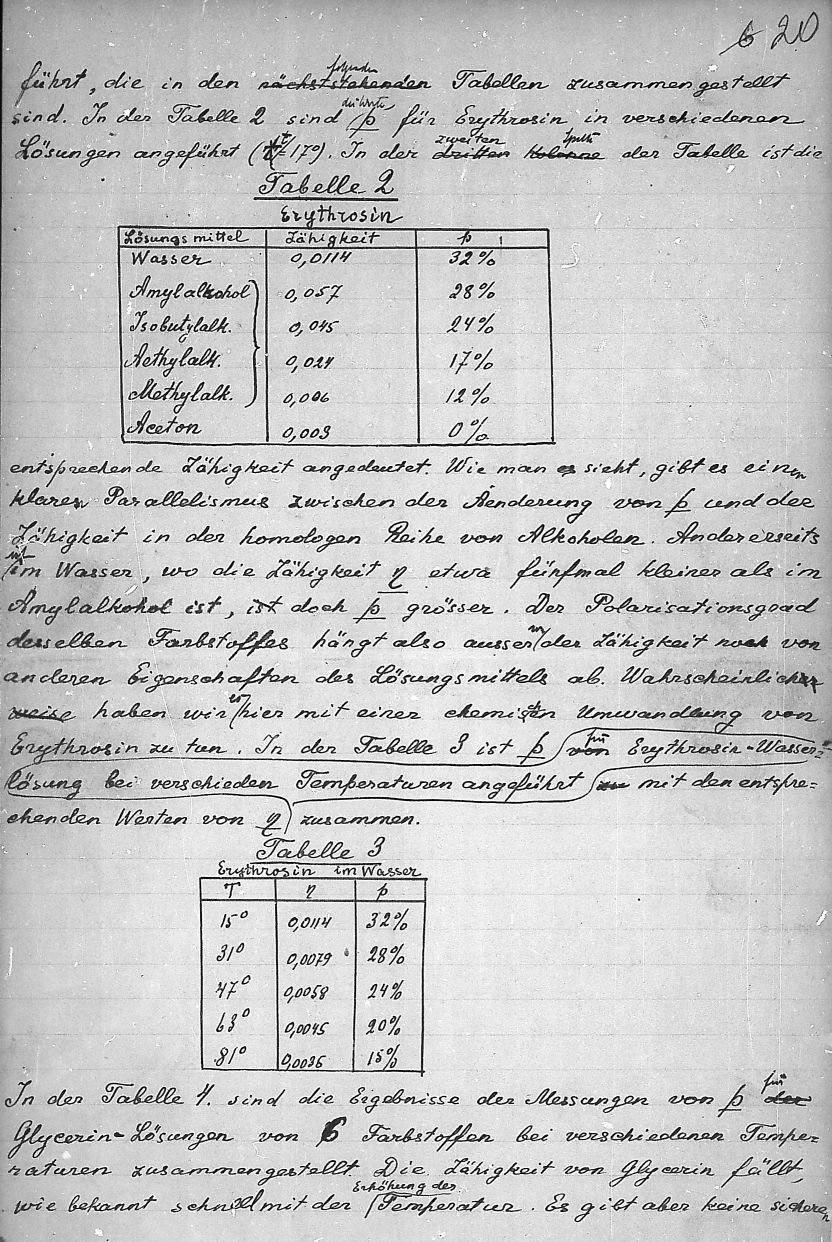 6 20
führt, die in den nächststehenden folgenden Tabellen zusammengestellt
sind. In der Tabelle 2 sind die Werte p für Erythrosin in verschiedenen
Lösungen angeführt (t=17°). In der dritten zweiten Kolonne Spalte der Tabelle ist die
Tabelle 2
Erythrosin
Lösungsmittel Zähigkeit p
Wasser 0,0114 32%
Amylalkohol 0,057 28%
Isobutylalk. 0,045 24%
Aethylalk. 0,024 17%
Methylalk. 0,006 12%
Aceton 0,003 0%
entsprechende Zähigkeit angedeutet. Wie man es sieht, gibt es einen
klaren Parallelismus zwischen der Aenderung von p und der
Zähigkeit in der homologen Reihe von Alkoholen. Andererseits
im Wasser, wo die Zähigkeit η etwa fünfmal kleiner als im
Amylalkohol ist, ist doch p grösser. Der Polarisationsgrad
desselben Farbstoffes hängt also ausser der Zähigkeit noch von
anderen Eigenschaften des Lösungsmittels ab. Wahrscheinlicher
weise haben wir es hier mit einer chemischen Umwandlung von
Erythrosin zu tun. In der Tabelle 3 ist p von für Erythrosin-Wasser=
lösung bei verschieden Temperaturen angeführt zu mit den entspre=
chenden Werten von η zusammen.
Tabelle 3
Erythrosin im Wasser
T η p
15° 0,0114 32%
31° 0,0079 28%
47° 0,0058 24%
63° 0,0045 20%
81° 0,0036 15%
In der Tabelle 4. sind die Ergebnisse der Messungen von p der für
Glycerin-Lösungen von 6 Farbstoffen bei verschiedenen Tempe=
raturen zusammengestellt. Die Zähigkeit von Glycerin fällt,
wie bekannt schnell mit der Erhöhung der Temperatur. Es gibt aber keine sicheren